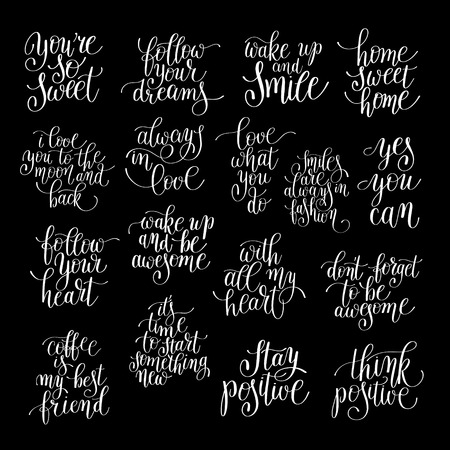 You're
so
sweet
follow
your
dreams
wake up
and
smile
home
sweet
home
i love
you to the
moon and
back
always
in
love
love
what
you
do
smiles
are
always in
fashion
yes
you
can
follow
your
heart
wake up
and be
awesome
with
all my
heart
don't forget
to be
awesome
coffee
is
my best
friend
it's
time
to start
something
new
Stay
positive
think
positive